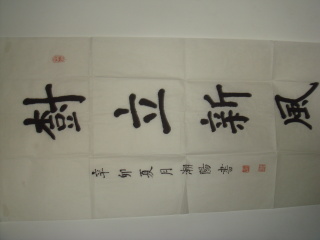 樹立新風
辛卯夏月湘陽書